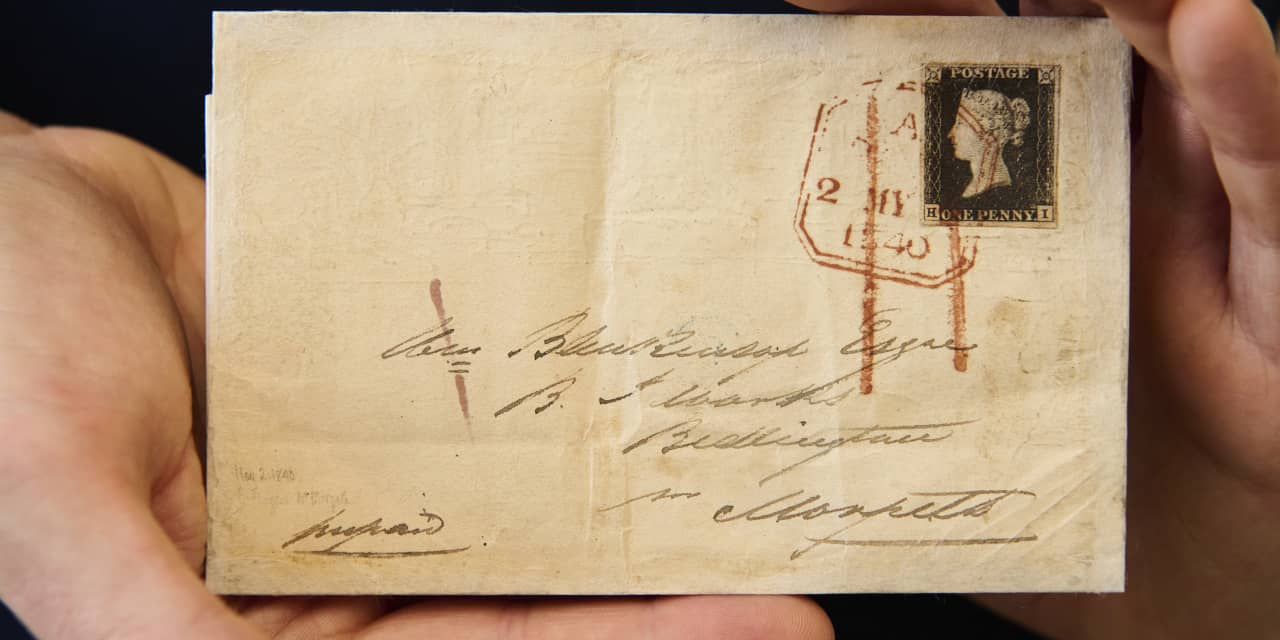 POSTAGE
A
2 MY
1840
H ONE PENNY I
Wm Blenkinsop Esqre
B. I Works
Bedlington
nr Morpeth
May 2 1840
prepaid